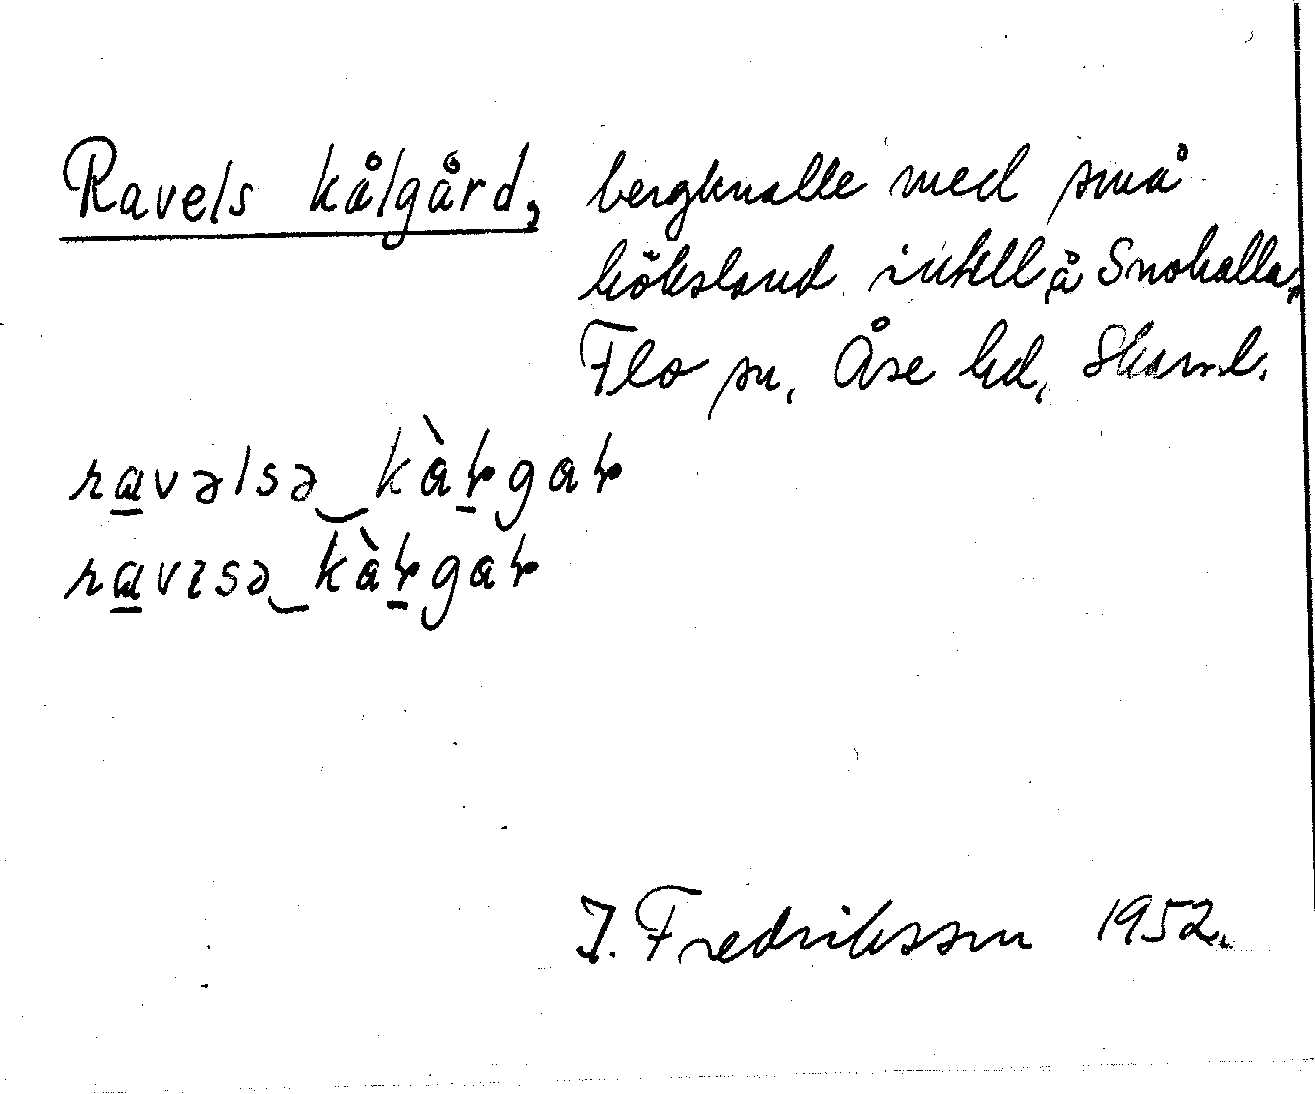 Ravels kålgård, bergknalle med små
köksland intill å Snokalla,
Flo sn. Åse hd, Skarab. l.
ravəlsə‿kàɽgaɽ
ravɪsə‿kàɽgaɽ
I. Fredriksson 1952.